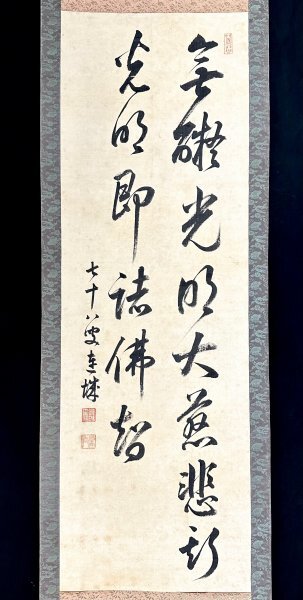 無礙光明大慈悲斯
光明即諸佛智
七十八叟連城